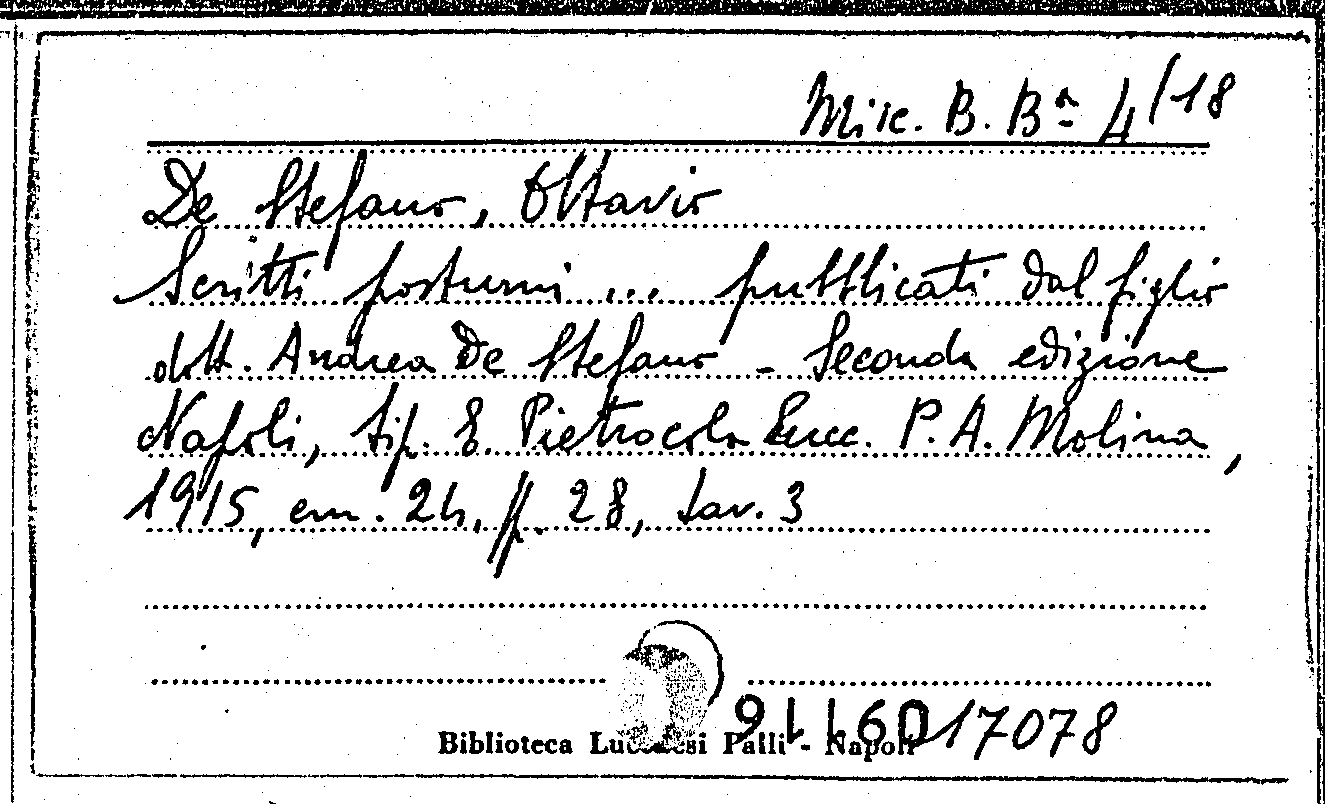 Misc. B. Bª 4/18
De Stefano, Ottavio
Scritti postumi ... pubblicati dal figlio
dott. Andrea De Stefano - Seconda edizione
Napoli, tip. E. Pietrocola Succ. P. A. Molina,
1915, cm. 24, pp. 28, tav. 3
017078
Biblioteca Lucchesi Palli - Napoli